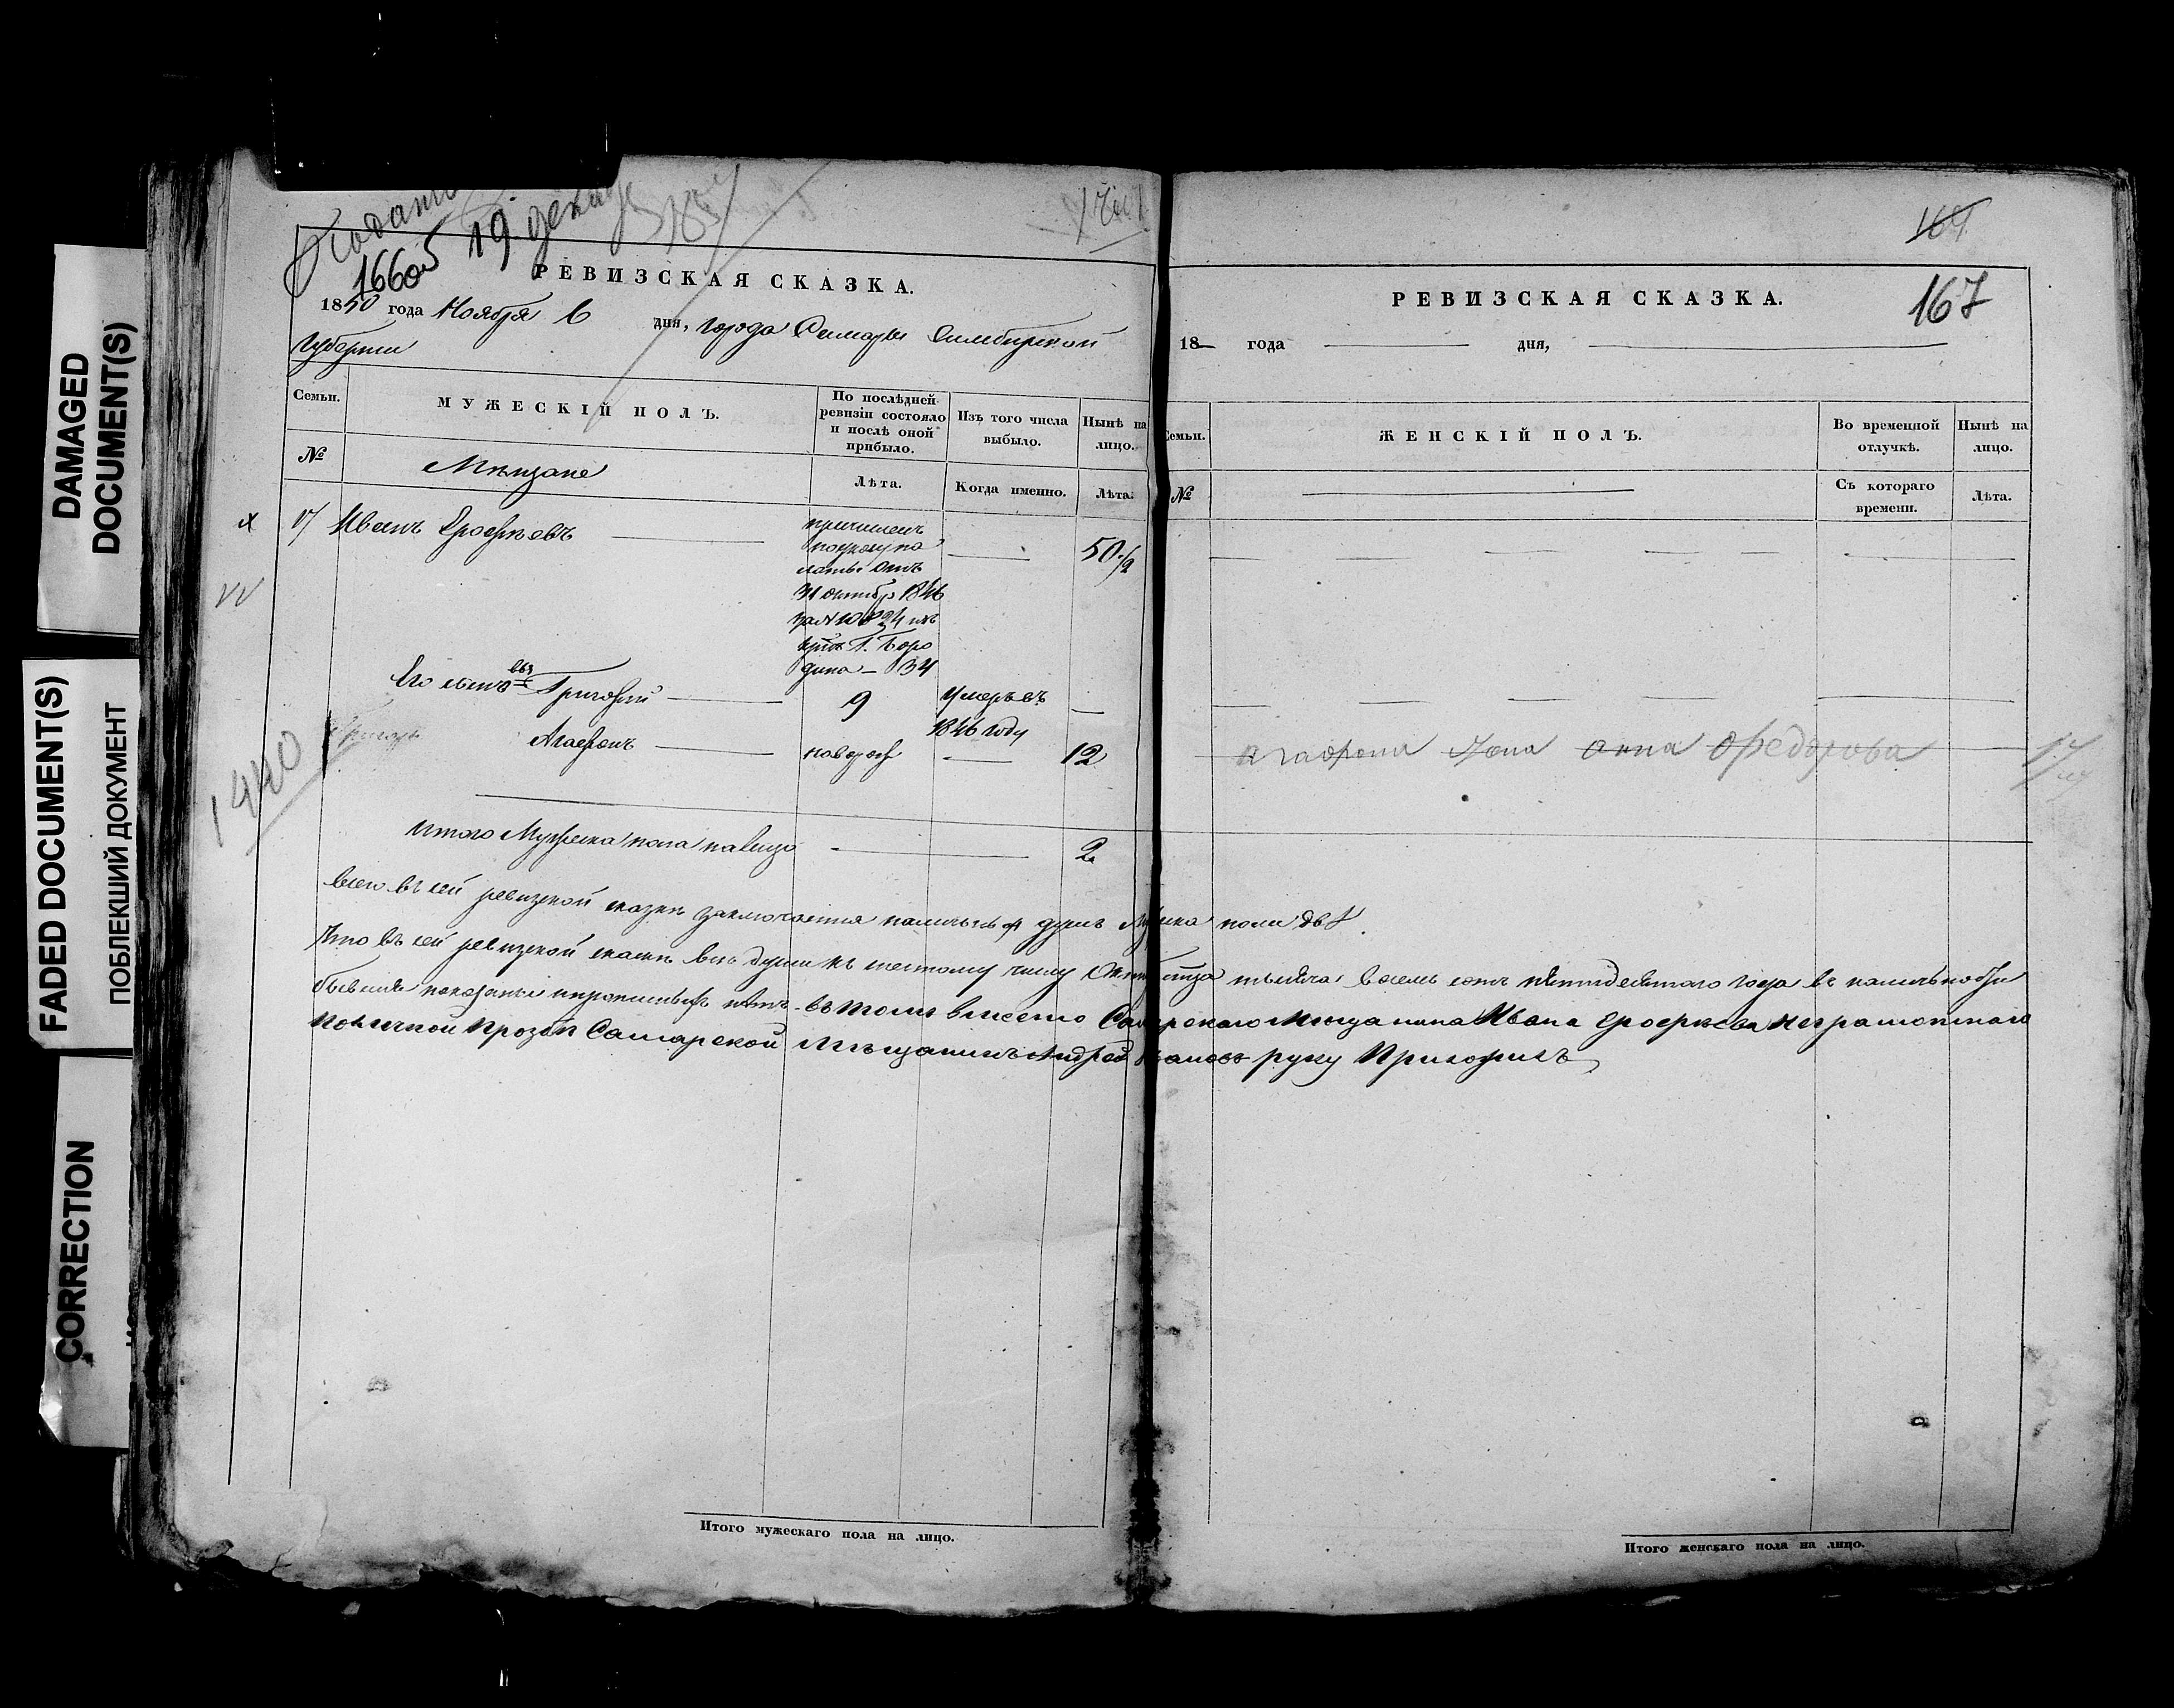 DAMAGED
DOCUMENT(S)
FADED DOCUMENT(S)
ПОБЛЕКШИЙ ДОКУМЕНТ
CORRECTION
19 декаб
1660
РЕВИЗСКАЯ СКАЗКА.
1850 года Ноября 6 дня, города Самары Симбирской
губернии
Семьи.
МУЖЕСКІЙ ПОЛЪ.
По послѣдней
ревизіи состояло
и послѣ оной
прибыло.
Изъ того числа
выбыло.
Нынѣ на
лицо.
№
Мѣщане
Лѣта.
Когда именно.
Лѣта.
17 Иванъ Ерофѣевъ
причисленъ
по указу па
латы отъ
31 октябр 1846
дина — 34
50 1/2
Его сынов Григорій 9 умеръ въ
1846 году
Агафонъ новорож 12
1440
Итого Мужеска пола налицо 2
Всего въ сей ревизской сказкѣ заключается наличныхъ душъ Мужска пола двѣ.
Что въ сей ревизской сказкѣ всѣ души къ шестому числу Октября тысяча восемь сотъ пятидесятаго года въ наличности
бывшія показаны и прописныхъ нѣтъ. въ томъ вместо Самарскаго Мѣщанина Ивана Ерофѣева неграмотнаго
по личной прозбѣ Самарской Мѣщанинъ Андрей Ивановъ руку Приложилъ
Итого мужескаго пола на лицо.
164
167
РЕВИЗСКАЯ СКАЗКА.
18 года дня,
Семьи.
ЖЕНСКІЙ ПОЛЪ.
Во временной
отлучкѣ.
Нынѣ на
лицо.
№
Съ котораго
времени.
Лѣта.
Агафона Жена Анна Федорова 17
Итого женскаго пола на лицо.